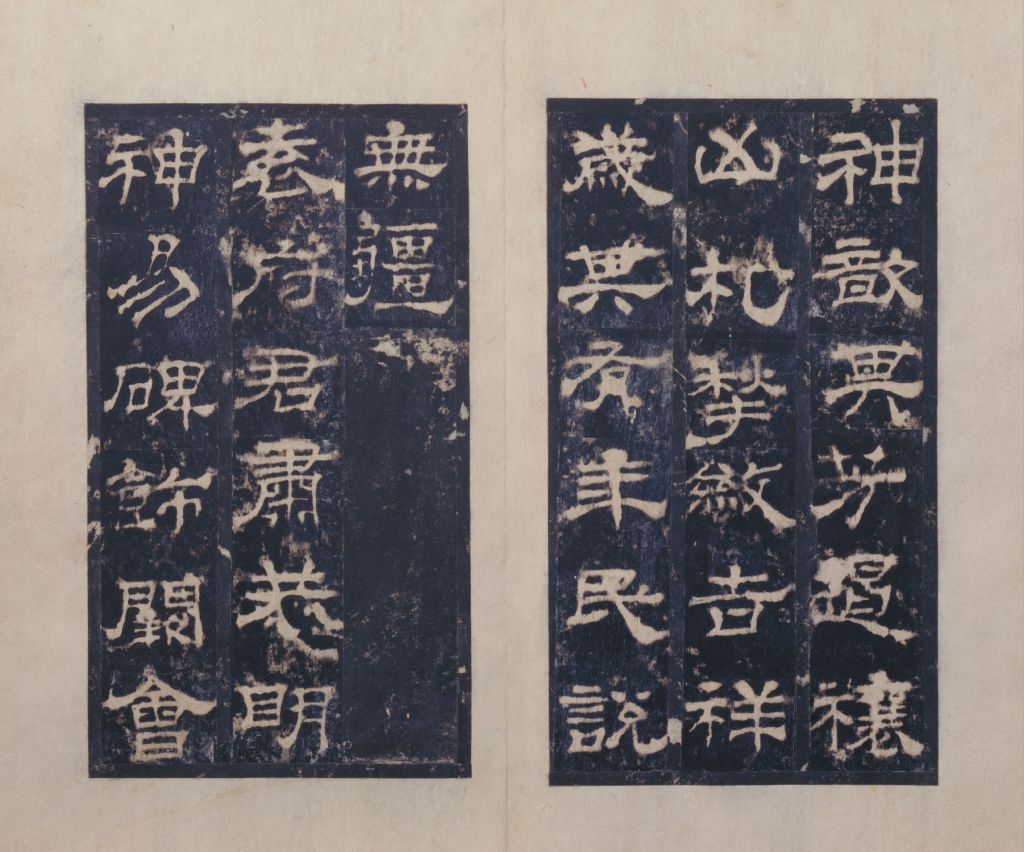 神歆其芳遏禳
凶札揫斂吉祥
歲其有年民說
無疆
袁府君肅恭明
神易碑飾闕會